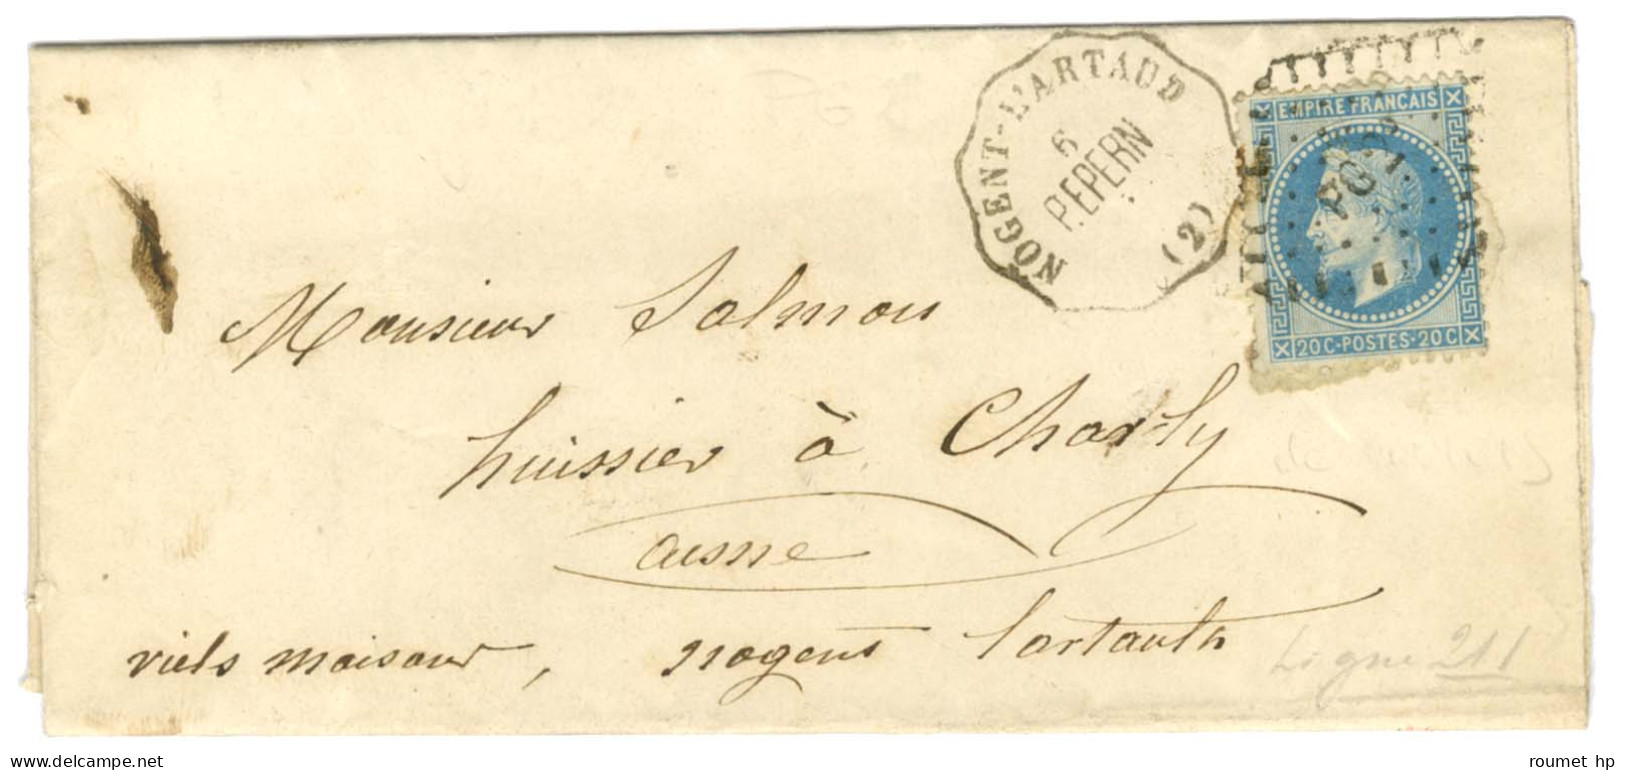 NOGENT-L'ARTAUD
6
P.EPERN
(2)
EMPIRE FRANCAIS
PG
20 C-POSTES-20 C
Monsieur Salmon
huissier à Charly
aisne
viels maisons, nogent lartauth
Ligne 211
roumet hp